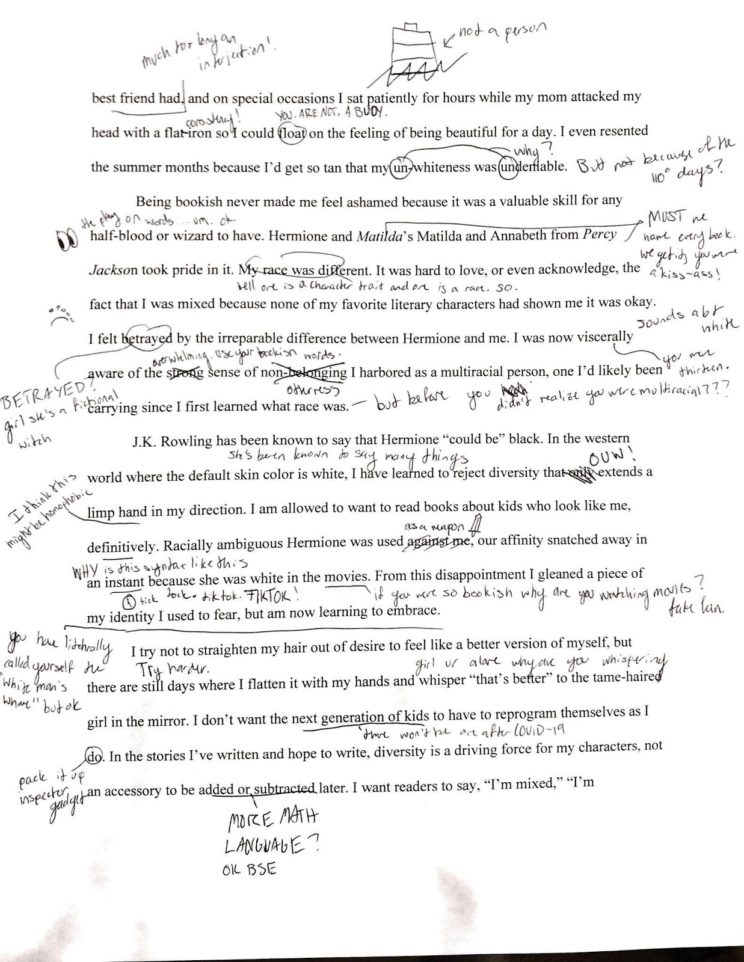 much too long an
interjection!
not a person
best friend had, and on special occasions I sat patiently for hours while my mom attacked my
corrosting!
YOU. ARE. NOT. A BUOY.
head with a flat-iron so I could float on the feeling of being beautiful for a day. I even resented
why?
the summer months because I'd get so tan that my un-whiteness was undeniable.
But not because of the
110° days?
Being bookish never made me feel ashamed because it was a valuable skill for any
the play on words... um. ok
half-blood or wizard to have. Hermione and Matilda's Matilda and Annabeth from Percy
MUST we
name every book.
we get it, you were
a kiss-ass!
Jackson took pride in it. My race was different. It was hard to love, or even acknowledge, the
well one is a character trait and one is a race. so.
fact that I was mixed because none of my favorite literary characters had shown me it was okay.
I felt betrayed by the irreparable difference between Hermione and me. I was now viscerally
sounds abt
white
overwhelming. use your bookish words.
aware of the strong sense of non-belonging I harbored as a multiracial person, one I'd likely been
you were
thirteen.
otherness
BETRAYED?
girl she's a fictional
witch
carrying since I first learned what race was.
— but before you didn't realize you were multiracial???
J.K. Rowling has been known to say that Hermione "could be" black. In the western
she's been known to say many things
world where the default skin color is white, I have learned to reject diversity that only extends a
OUW!
I think this
might be homophobic
limp hand in my direction. I am allowed to want to read books about kids who look like me,
as a weapon
definitively. Racially ambiguous Hermione was used against me, our affinity snatched away in
WHY is this syntax like this
an instant because she was white in the movies. From this disappointment I gleaned a piece of
tick tock. tiktok. TIKTOK!
if you were so bookish why are you watching movies?
fake fan.
my identity I used to fear, but am now learning to embrace.
you have litchrally
called yourself the
"white man's
whore" but ok
I try not to straighten my hair out of desire to feel like a better version of myself, but
Try harder.
girl ur alone why are you whispering
there are still days where I flatten it with my hands and whisper "that's better" to the tame-haired
girl in the mirror. I don't want the next generation of kids to have to reprogram themselves as I
there won't be one after COVID-19
do. In the stories I've written and hope to write, diversity is a driving force for my characters, not
pack it up
inspector
gadget
an accessory to be added or subtracted later. I want readers to say, "I'm mixed," "I'm
MORE MATH
LANGUAGE?
OK BSE